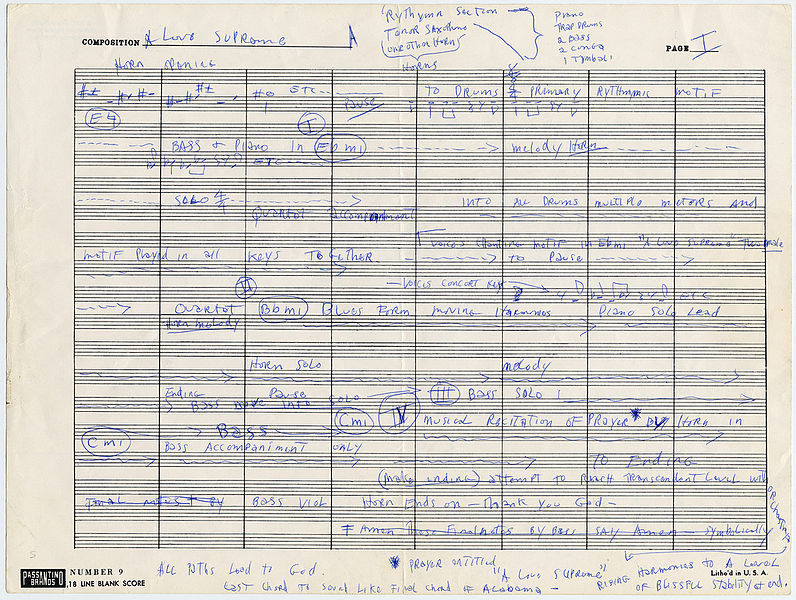 COMPOSITION A LOVE SUPREME
Rythymn Section
Tenor Saxophone
(one other Horn)
Horns
Piano
Trap Drums
2 Bass
2 Conga
1 Tymbali
PAGE I
Horn opening
ETC
Pause
TO DRUMS 4/4 PRIMARY RYTHMIC MOTIF
E4
I
BASS & PIANO in Ebmi melody Horn
ETC
SOLO 4/4 INTO ALL DRUMS MULTIPLE METERS And
QUARTOT accompaniment
VOICES Chanting MOTIF in Ebmi "A Love Supreme"
motif Played in all KEYS TOGETHER to Pause
VOICES CONCERT Key
II
ETC
QUARTOT Bbmi BLUES FORM MOVING HARMONIES PIANO SOLO Lead
Horn melody
HORN SOLO melody
Ending Pause III BASS SOLO
BASS move INTO SOLO
BASS Cmi IV MUSICAL RECITATION OF PRAYER * By HORN in
Cmi BASS ACCOMPANIMENT ONLY
TO Ending
(make ending) attempt to Reach Transcendant Level with ORCHESTRA
Final notes BY BASS VIOL HORN Ends on — Thank you God —
Amen These Final notes BY BASS SAY Amen — symbolically
RISING HARMONIES TO A LEVEL
OF BLISSFUL STABILITY at end.
ALL Paths Lead to God. * PRAYER entitled "A Love Supreme"
Last Chord to sound Like Final chord OF Alabama —
5
PASSANTINO BRANDS
NUMBER 9
18 LINE BLANK SCORE
Litho'd in U. S. A.